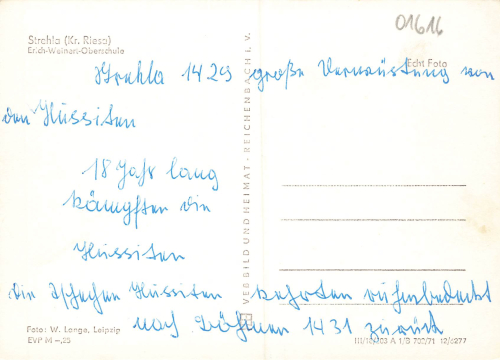 01616
Strehla (Kr. Riesa)
Erich-Weinert-Oberschule
Echt Foto
Strehla 1429 große Verwüstung von
den Hussiten
18 Jahr lang
kämpften die
Hussiten
die Tschechen Hussiten kehrten ruhmbedeckt
nach Böhmen 1431 zurück
VEB BILD UND HEIMAT · REICHENBACH I. V.
Foto: W. Lange, Leipzig
EVP M -,25
A 1/B 702/71 12/6277